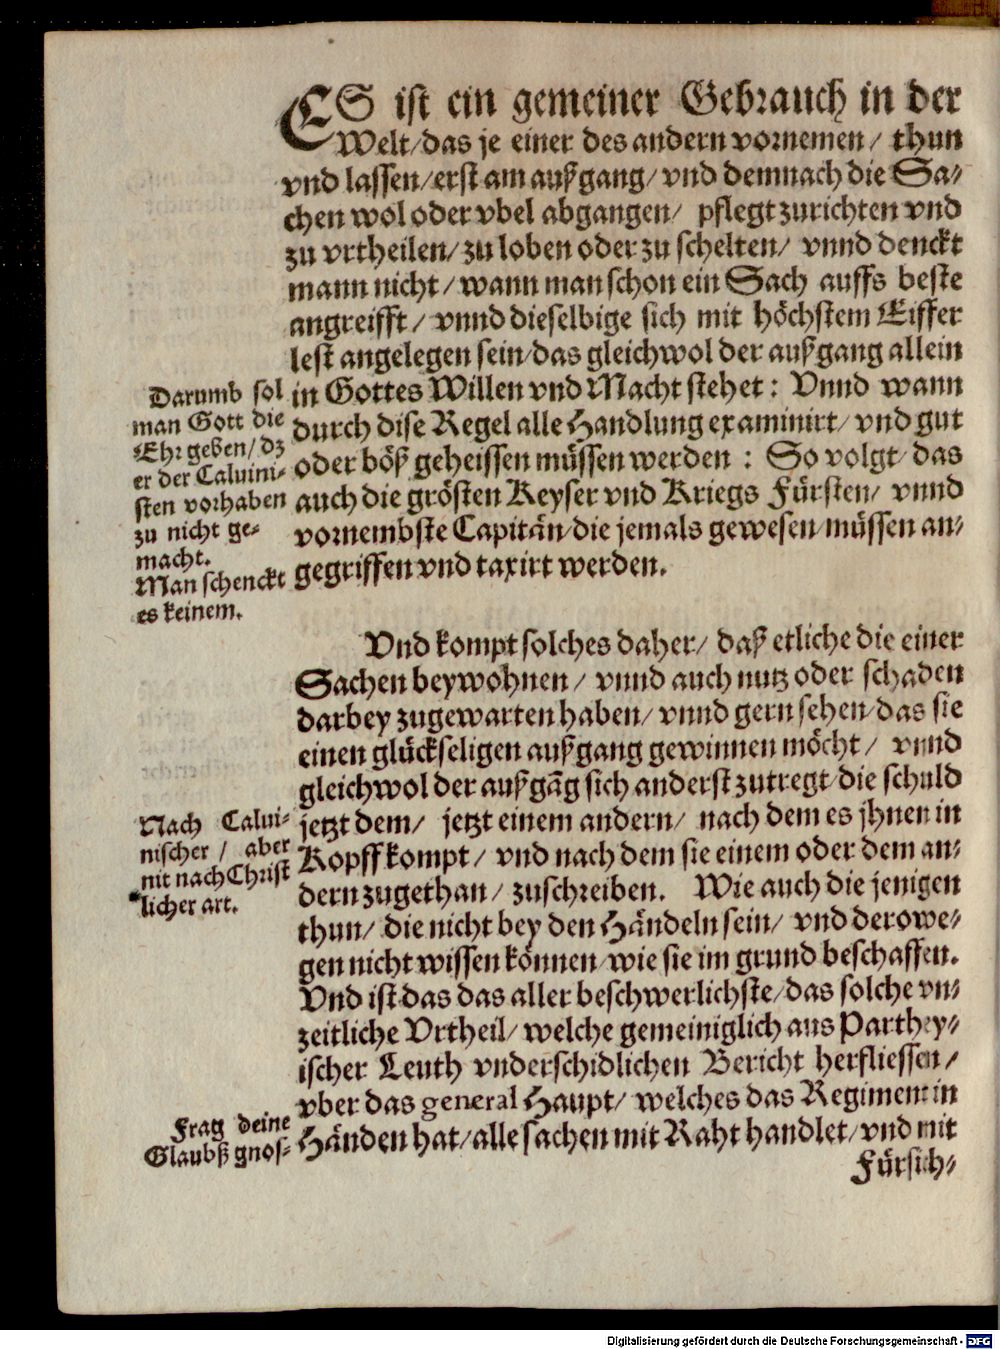 ES ist ein gemeiner Gebrauch in der
Welt/das je einer des andern vornemen/ thun
vnd lassen/erst am außgang/vnd demnach die Sa-
chen wol oder vbel abgangen/ pflegt zurichten vnd
zu vrtheilen/zu loben oder zu schelten/ vnnd denckt
mann nicht/wann man schon ein Sach auffs beste
angreifft/ vnnd dieselbige sich mit höchstem Eiffer
lest angelegen sein/das gleichwol der außgang allein
in Gottes Willen vnd Macht stehet: Vnnd wann
durch dise Regel alle Handlung examinirt/vnd gut
oder böß geheissen müssen werden: So volgt/das
auch die grösten Keyser vnd Kriegs Fürsten/ vnnd
vornembste Capitän/die jemals gewesen/müssen an-
gegriffen vnd taxirt werden.
Darumb sol
man Gott die
Ehr geben/dz
er der Caluini-
sten vorhaben
zu nicht ge-
macht.
Man schenckt
es keinem.
Vnd kompt solches daher/ daß etliche die einer
Sachen beywohnen/ vnnd auch nutz oder schaden
darbey zugewarten haben/vnnd gern sehen/das sie
einen glückseligen außgang gewinnen möcht/ vnnd
gleichwol der außgãg sich anderst zutregt/die schuld
jetzt dem/ jetzt einem andern/ nach dem es jhnen in
Kopff kompt/ vnd nach dem sie einem oder dem an-
dern zugethan/ zuschreiben. Wie auch die jenigen
thun/ die nicht bey den Händeln sein/ vnd derowe-
gen nicht wissen können/wie sie im grund beschaffen.
Vnd ist das das aller beschwerlichste/das solche vn-
zeitliche Vrtheil/welche gemeiniglich aus Parthey-
ischer Leuth vnderschidlichen Bericht herfliessen/
vber das general Haupt/ welches das Regiment in
Händen hat/alle sachen mit Raht handlet/vnd mit
Nach Calui-
nischer/ aber
nit nach Christ
licher art.
Frag deine
Glaubß gnos-
Fürsich-
Digitalisierung gefördert durch die Deutsche Forschungsgemeinschaft - DFG